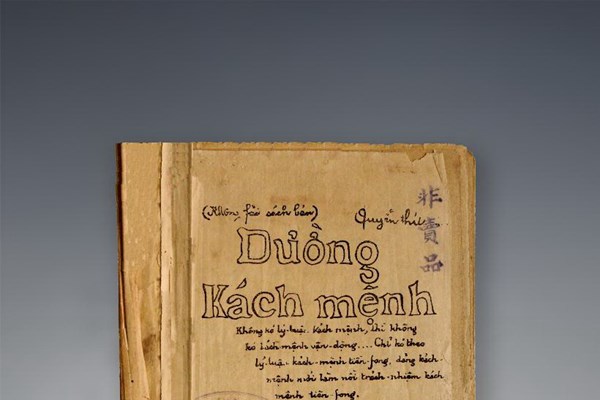 (Không fải sách bán)
Quyển thứ
非賣品
Đường
Kách mệnh
Không kó lý-luận kách mệnh, thì không
kó kách mệnh vận-động.... Chỉ kó theo
lý-luận kách-mệnh tiên-fong, đảng kách-
mệnh mới làm nổi trách-nhiệm kách
mệnh tiên-fong.